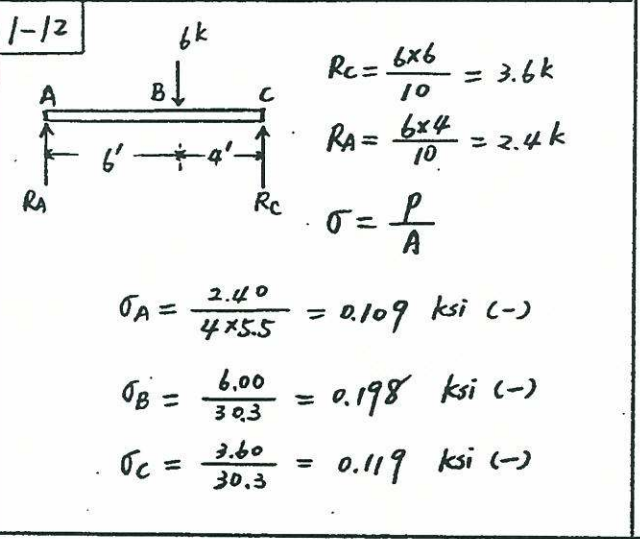 1-12
6k
A B C
6' 4'
RA RC
RC = 6×6/10 = 3.6k
RA = 6×4/10 = 2.4k
σ = P/A
σA = 2.40/4×5.5 = 0.109 ksi (-)
σB = 6.00/30.3 = 0.198 ksi (-)
σC = 3.60/30.3 = 0.119 ksi (-)